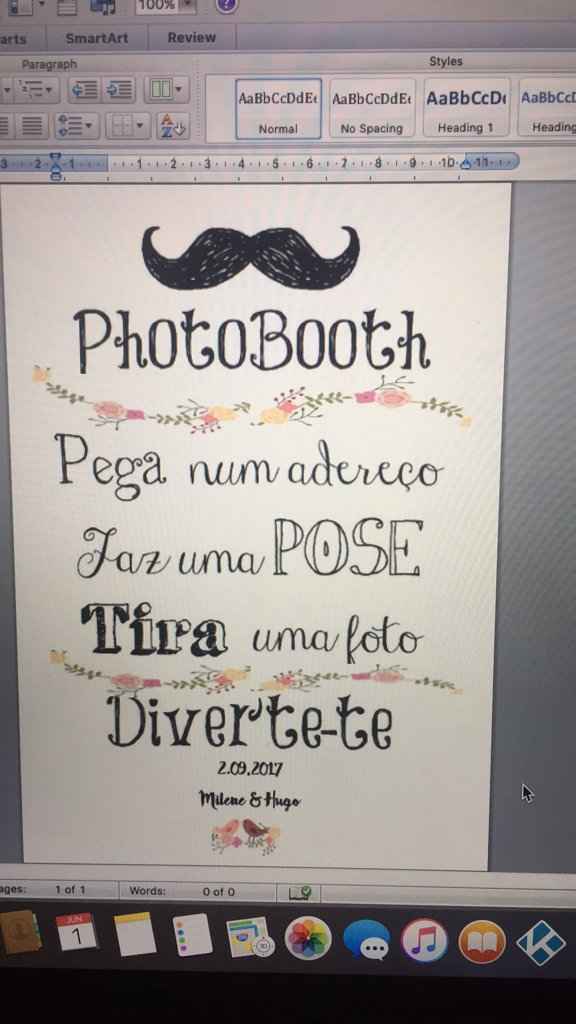 100%
arts SmartArt Review
Paragraph Styles
AaBbCcDdEe AaBbCcDdEe AaBbCcDc AaBbCcDc
Normal No Spacing Heading 1 Heading
3 2 1 1 2 3 4 5 6 7 8 9 10 11
PhotoBooth
Pega num adereço
Faz uma POSE
Tira uma foto
Diverte-te
2.09.2017
Milene & Hugo
ages: 1 of 1 Words: 0 of 0
JUN
1